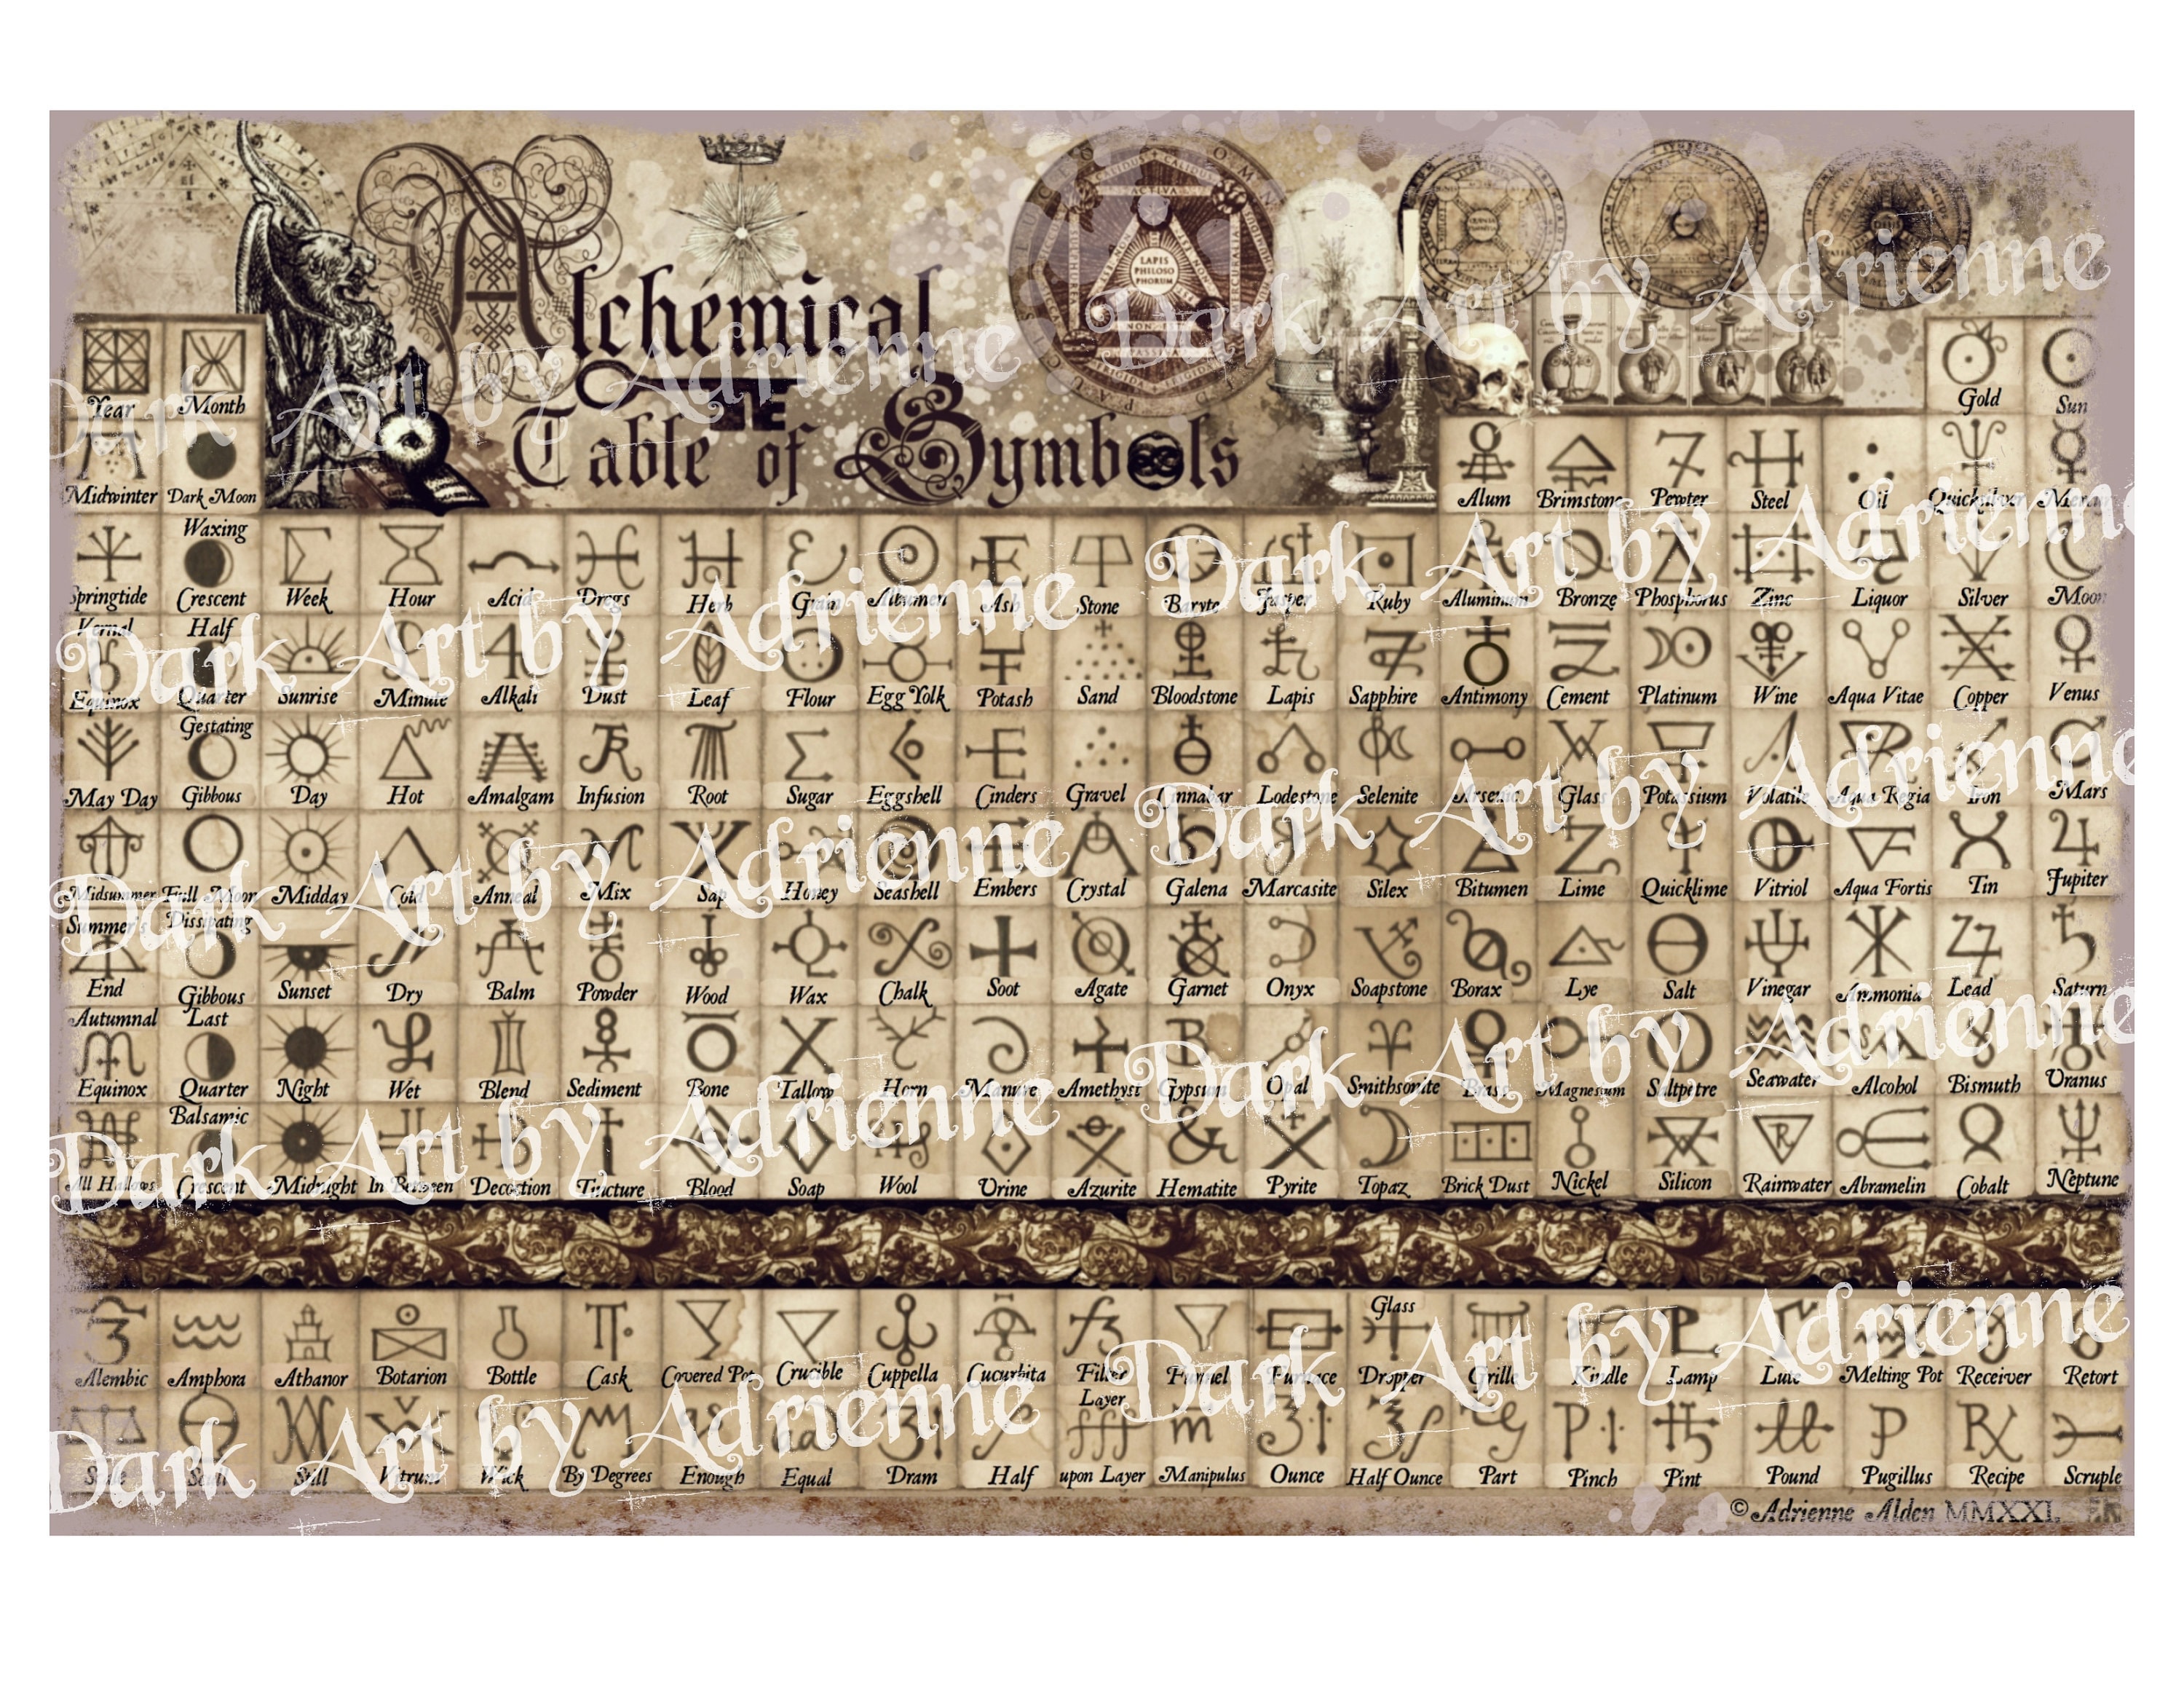 Alchemical
THE
Table of Symbols
LAPIS
PHILOSO
PHORUM
ACTIVA
Year Month Gold Sun
Midwinter Dark Moon Alum Brimstone Pewter Steel Oil Quicksilver
Springtide Waxing Crescent Week Hour Acid Dregs Herb Grain Albumen Ash Stone Baryte Jasper Ruby Aluminum Bronze Phosphorus Zinc Liquor Silver Moon
Vernal Equinox Half Quarter Sunrise Minute Alkali Dust Leaf Flour Egg Yolk Potash Sand Bloodstone Lapis Sapphire Antimony Cement Platinum Wine Aqua Vitae Copper Venus
May Day Gestating Gibbous Day Hot Amalgam Infusion Root Sugar Eggshell Cinders Gravel Cinnabar Lodestone Selenite Arsenic Glass Potassium Volatile Aqua Regia Iron Mars
Midsummer Full Moon Midday Cold Anneal Mix Sap Honey Seashell Embers Crystal Galena Marcasite Silex Bitumen Lime Quicklime Vitriol Aqua Fortis Tin Jupiter
Summer's End Dissipating Gibbous Sunset Dry Balm Powder Wood Wax Chalk Soot Agate Garnet Onyx Soapstone Borax Lye Salt Vinegar Ammonia Lead Saturn
Autumnal Equinox Last Quarter Night Wet Blend Sediment Bone Tallow Horn Manure Amethyst Gypsum Opal Smithsonite Brass Magnesium Saltpetre Seawater Alcohol Bismuth Uranus
All Hallows Balsamic Crescent Midnight In Between Decoction Tincture Blood Soap Wool Urine Azurite Hematite Pyrite Topaz Brick Dust Nickel Silicon Rainwater Abramelin Cobalt Neptune
Alembic Amphora Athanor Botarion Bottle Cask Covered Pot Crucible Cuppella Cucurbita Filter Funnel Furnace Glass Dropper Grille Kindle Lamp Lute Melting Pot Receiver Retort
Scale Still Vitrum Wick By Degrees Enough Equal Dram Half Layer upon Layer Manipulus Ounce Half Ounce Part Pinch Pint Pound Pugillus Recipe Scruple
© Adrienne Alden MMXXI
Dark Art by Adrienne
Dark Art by Adrienne
Dark Art by Adrienne
Dark Art by Adrienne
Dark Art by Adrienne
Dark Art by Adrienne
Dark Art by Adrienne
Dark Art by Adrienne
Dark Art by Adrienne
Dark Art by Adrienne